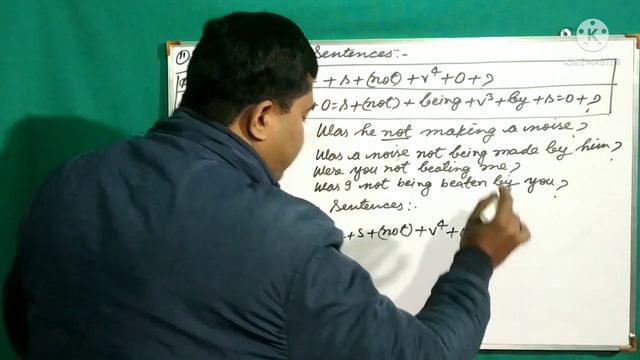 (ii) Sentences:-
+ s + (not) + v⁴ + O + ?
+ O = s + (not) + being + v³ + by + s = o + ?
Was he not making a noise?
Was a noise not being made by him?
Were you not beating me?
Was I not being beaten by you?
Sentences:-
+ s + (not) + v⁴ +
KINEMASTER